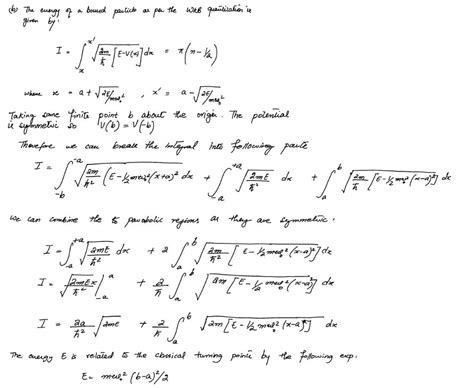 (b) The energy of a bound particle as per the WKB quantisation is
given by:
I = ∫_x^{x'} √(2m/ħ [E-V(x)]) dx = π(n-1/2)
where x = a + √(2E/mω₀²) , x' = a - √(2E/mω₀²)
Taking some finite point b about the origin. The potential
is symmetric so V(b) = V(-b)
Therefore we can break the integral into following parts
I = ∫_{-b}^{-a} √(2m/ħ² (E-1/2 mω₀²(x+a)² dx + ∫_{-a}^{+a} √(2mE/ħ²) dx + ∫_a^b √(2m/ħ² [E-1/2 mω₀²(x-a)²]) dx
we can combine the parabolic regions as they are symmetric.
I = ∫_{-a}^{+a} √(2mE/ħ²) dx + 2 ∫_a^b √(2m/ħ² [E-1/2 mω₀²(x-a)²]) dx
I = √(2mEx/ħ²) |_{-a}^{a} + 2/ħ ∫_a^b √(2m[E-1/2 mω₀²(x-a)²]) dx
I = 2a/ħ² √(2mE) + 2/ħ ∫_a^b √(2m[E-1/2 mω₀²(x-a)²]) dx
The energy E is related to the classical turning points by the following exp:
E = mω₀² (b-a)²/2